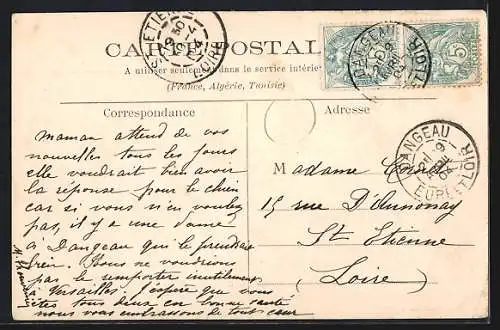 ST ETIENNE
9 30
19-4
04
LOIRE
CARTE POSTALE
A utiliser seulement dans le service intérieur
(France, Algérie, Tunisie)
DANGEAU
EURE-ET-LOIR
5
Correspondance
Adresse
DANGEAU
EURE-ET-LOIR
Maman attend de vos
nouvelles tous les jours
elle voudrait bien avoir
la réponse pour le chien
car si vous n'en voulez
pas, il y a une dame
à Dangeau qui le prendrait
bien. Nous ne voudrions
pas le remporter inutilement
à Versailles. J'espère que vous
êtes tous deux en bonne santé
nous vous embrassons de tout cœur
Madame
15 rue D'Annonay
St Etienne
(Loire)